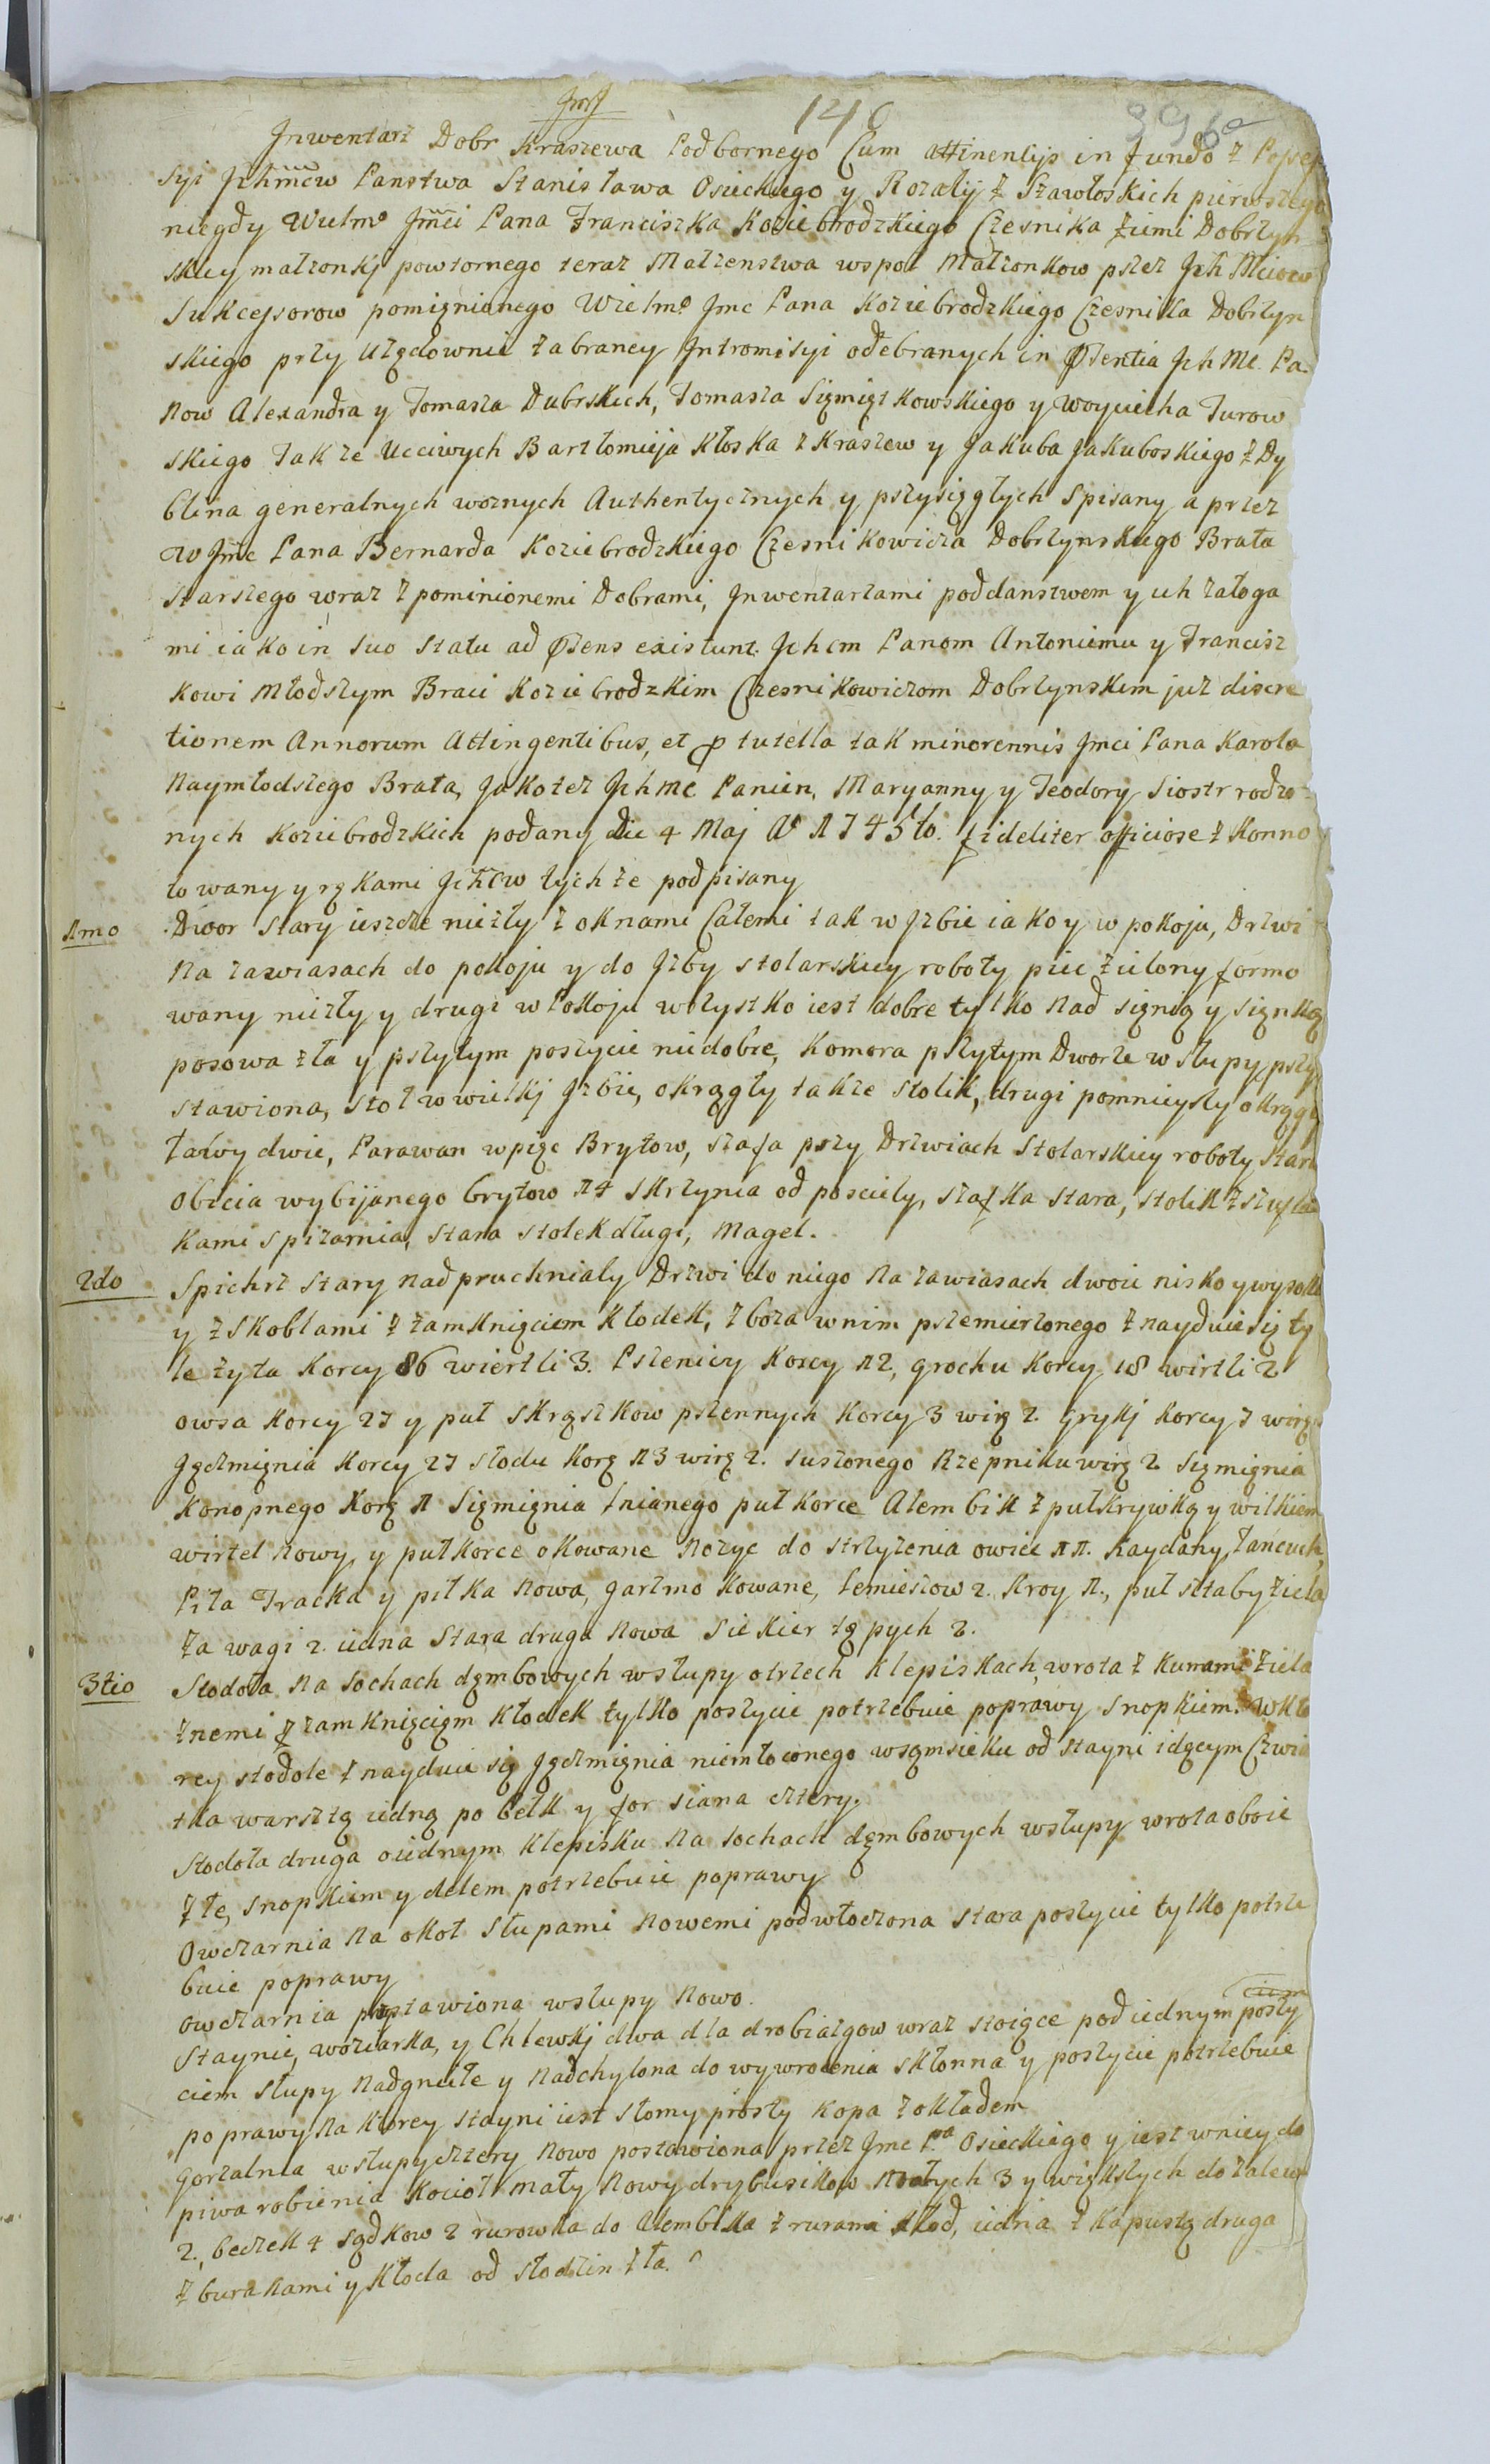 146
396a
Inwentarz Dobr Kraszewa Podbornego Cum attinentijs in fundo z Possess
syi Ichmcw Panstwa Stanisława Osieckiego y Rozalij z Szawłoskich pierwszego
niegdy Wielmo Jmci Pana Franciszka Koziebrodzkiego Czesnika Ziemi Dobrzyn
skiey małzonkj powtornego teraz Małzenstwa wspoł Małzonkow przez Ich Mciow
Sukcessorow pomięnionego Wielmo Jmc Pana Koziebrodzkiego Czesnika Dobrzyn
skiego przy Uzędownie zabraney Intromisyi odebranych in Pszentia Ich Mc Pa
now Alexandra y Tomasza Dubrskich, Tomasza Sięmiątkowskiego y Woyciecha Turow
skiego Takze Ucciwych Bartłomieja Kłoska z Kraszew y Jakuba Jakuboskiego z Dy
blina generalnych woznych Authentycznych y pszysięgłych Spisany a przez
W Jmc Pana Bernarda Koziebrodzkiego Czesnikowicza Dobrzynskiego Brata
starszego wraz z pominionemi Dobrami, Inwentarzami poddanstwem y ich załoga
mi iako in suo statu ad Psens existunt. Ichcm Panom Antoniemu y Francisz
kowi Młodszym Braci Koziebrodzkim Czesnikowiczom Dobrzynskim juz discre
tionem Annorum Attingentibus, et p tutella tak minorennis Jmci Pana Karola
Naymłodszego Brata, Jakotez Ichmc Panien, Maryanny y Teodory Siostr rodzo
nych Koziebrodzkich podany die 4 Maj Ao 1745to. fideliter officiose z konno
towany y rękami Ichcw tych ze podpisany
1mo Dwor stary ieszcze niezły z oknami Całemi tak w Izbie iako y w pokoju, Drzwi
na zawiasach do pokoju y do Izby stolarskiey roboty piec zielony formo
wany niezły y drugi w Pokoju wszystko iest dobre tylko nad sięnią y sięnką
posowa zła y pszytym poszycie niedobre, Komora pszytym Dworze w słupy pszy
stawiona, stoł w wielkj Izbie, okrągły takze stolik, drugi pomnieyszy okrągły
ławy dwie, Parawan w pięc Brytow, szafa pszy Drzwiach Stolarskiey roboty stara
Obicia wybijanego brytow 14 skrzynia od poscieły, szafka stara, stolik z szufla
kami spizarnia, stara stolek długi, Magel.
2do Spichrz stary nadpruchniały Drzwi do niego na zawiasach dwoie nisko y wysoko
y z skoblami z zamknięciem kłodek, zboza w nim pszemierzonego znayduie się ty
le zyta Korcy 86 wiertli 3. Pszenicy Korcy 12, grochu Korcy 18 wirtli 2
owsa Korcy 27 y puł skrąszkow pszennych Korcy 3 wirę 2. Grykj korcy 7 wirę
Jęczmięnia Korcy 27 słodu Korę 13 wirę 2. suszonego Rzepniku wirę 2 Sięmięnia
Konopnego Korę 1 Sięmięnia lnianego puł korce Alembik z pułkrywką y wilkiem
wirtel nowy y pułkorce okowane nozyc do strzyzenia owiec 11. Kaydany, Łancuch,
Piła Tracka y piłka nowa, garzmo kowane, lemieszow 2. Kroy 1., puł sztaby ziela
za wagi 2. iedna stara druga nowa siekier tępych 2.
3tio Stodoła na sochach dęmbowych w słupy o trzech klepiskach, wrota z kunami ziela
znemi z zamknięcięm kłodek tylko poszycie potrzebuie poprawy snopkiem. W kto
rey stodole znayduie się Jęczmięnia niemłoconego wsąmsieku od stayni idącym Czwi
tka warsztę iedną po belk y for siana cztery.
Stodoła druga o iednym klepisku na sochach dęmbowych w słupy wrota oboie
złe, snopkiem y delem potrzebuie poprawy
Owczarnia na okoł słupami nowemi podwłoczona stara poszycie tylko potrze
buie poprawy
Owczarnia postawiona w słupy nowo.
Staynie, woziarka, y Chlewkj dwa dla drobiazgow wraz stoiące pod iednym poszy
ciem słupy nadgniłe y nadchylona do wywrocenia skłonna y poszycie potrzebuie
poprawy na ktorey stayni iest słomy prosty kopa z okładem
Gorzalnia w słupy cztery nowo postawiona przez Jmc Pa Osieckiego y iest w niey do
piwa robienia kocioł mały nowy drybusikow małych 3 y większych do zalew
2., beczek 4 sądkow 2 rurowka do alembika z rurami kłod, iedna z kapustą druga
z burakami y kłoda od słodzin zła.